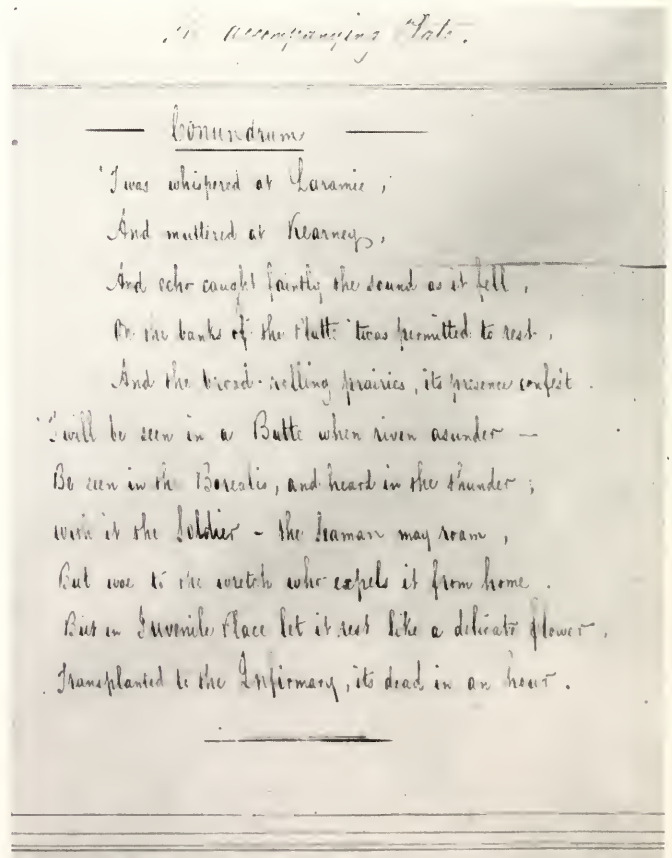 accompanying
Conundrum
'Twas whispered at Laramie,
And muttered at Kearney,
And echo caught faintly the sound as it fell,
On the banks of the Platte 'twas permitted to rest,
And the broad-rolling prairies, its presence confest.
'Twill be seen in a Butte when riven asunder —
Be seen in the Borealis, and heard in the thunder;
with it the Soldier - the Seaman may roam,
But woe to the wretch who expels it from home.
But in Juvenile Place let it rest like a delicate flower,
Transplanted to the Infirmary, its dead in an hour.